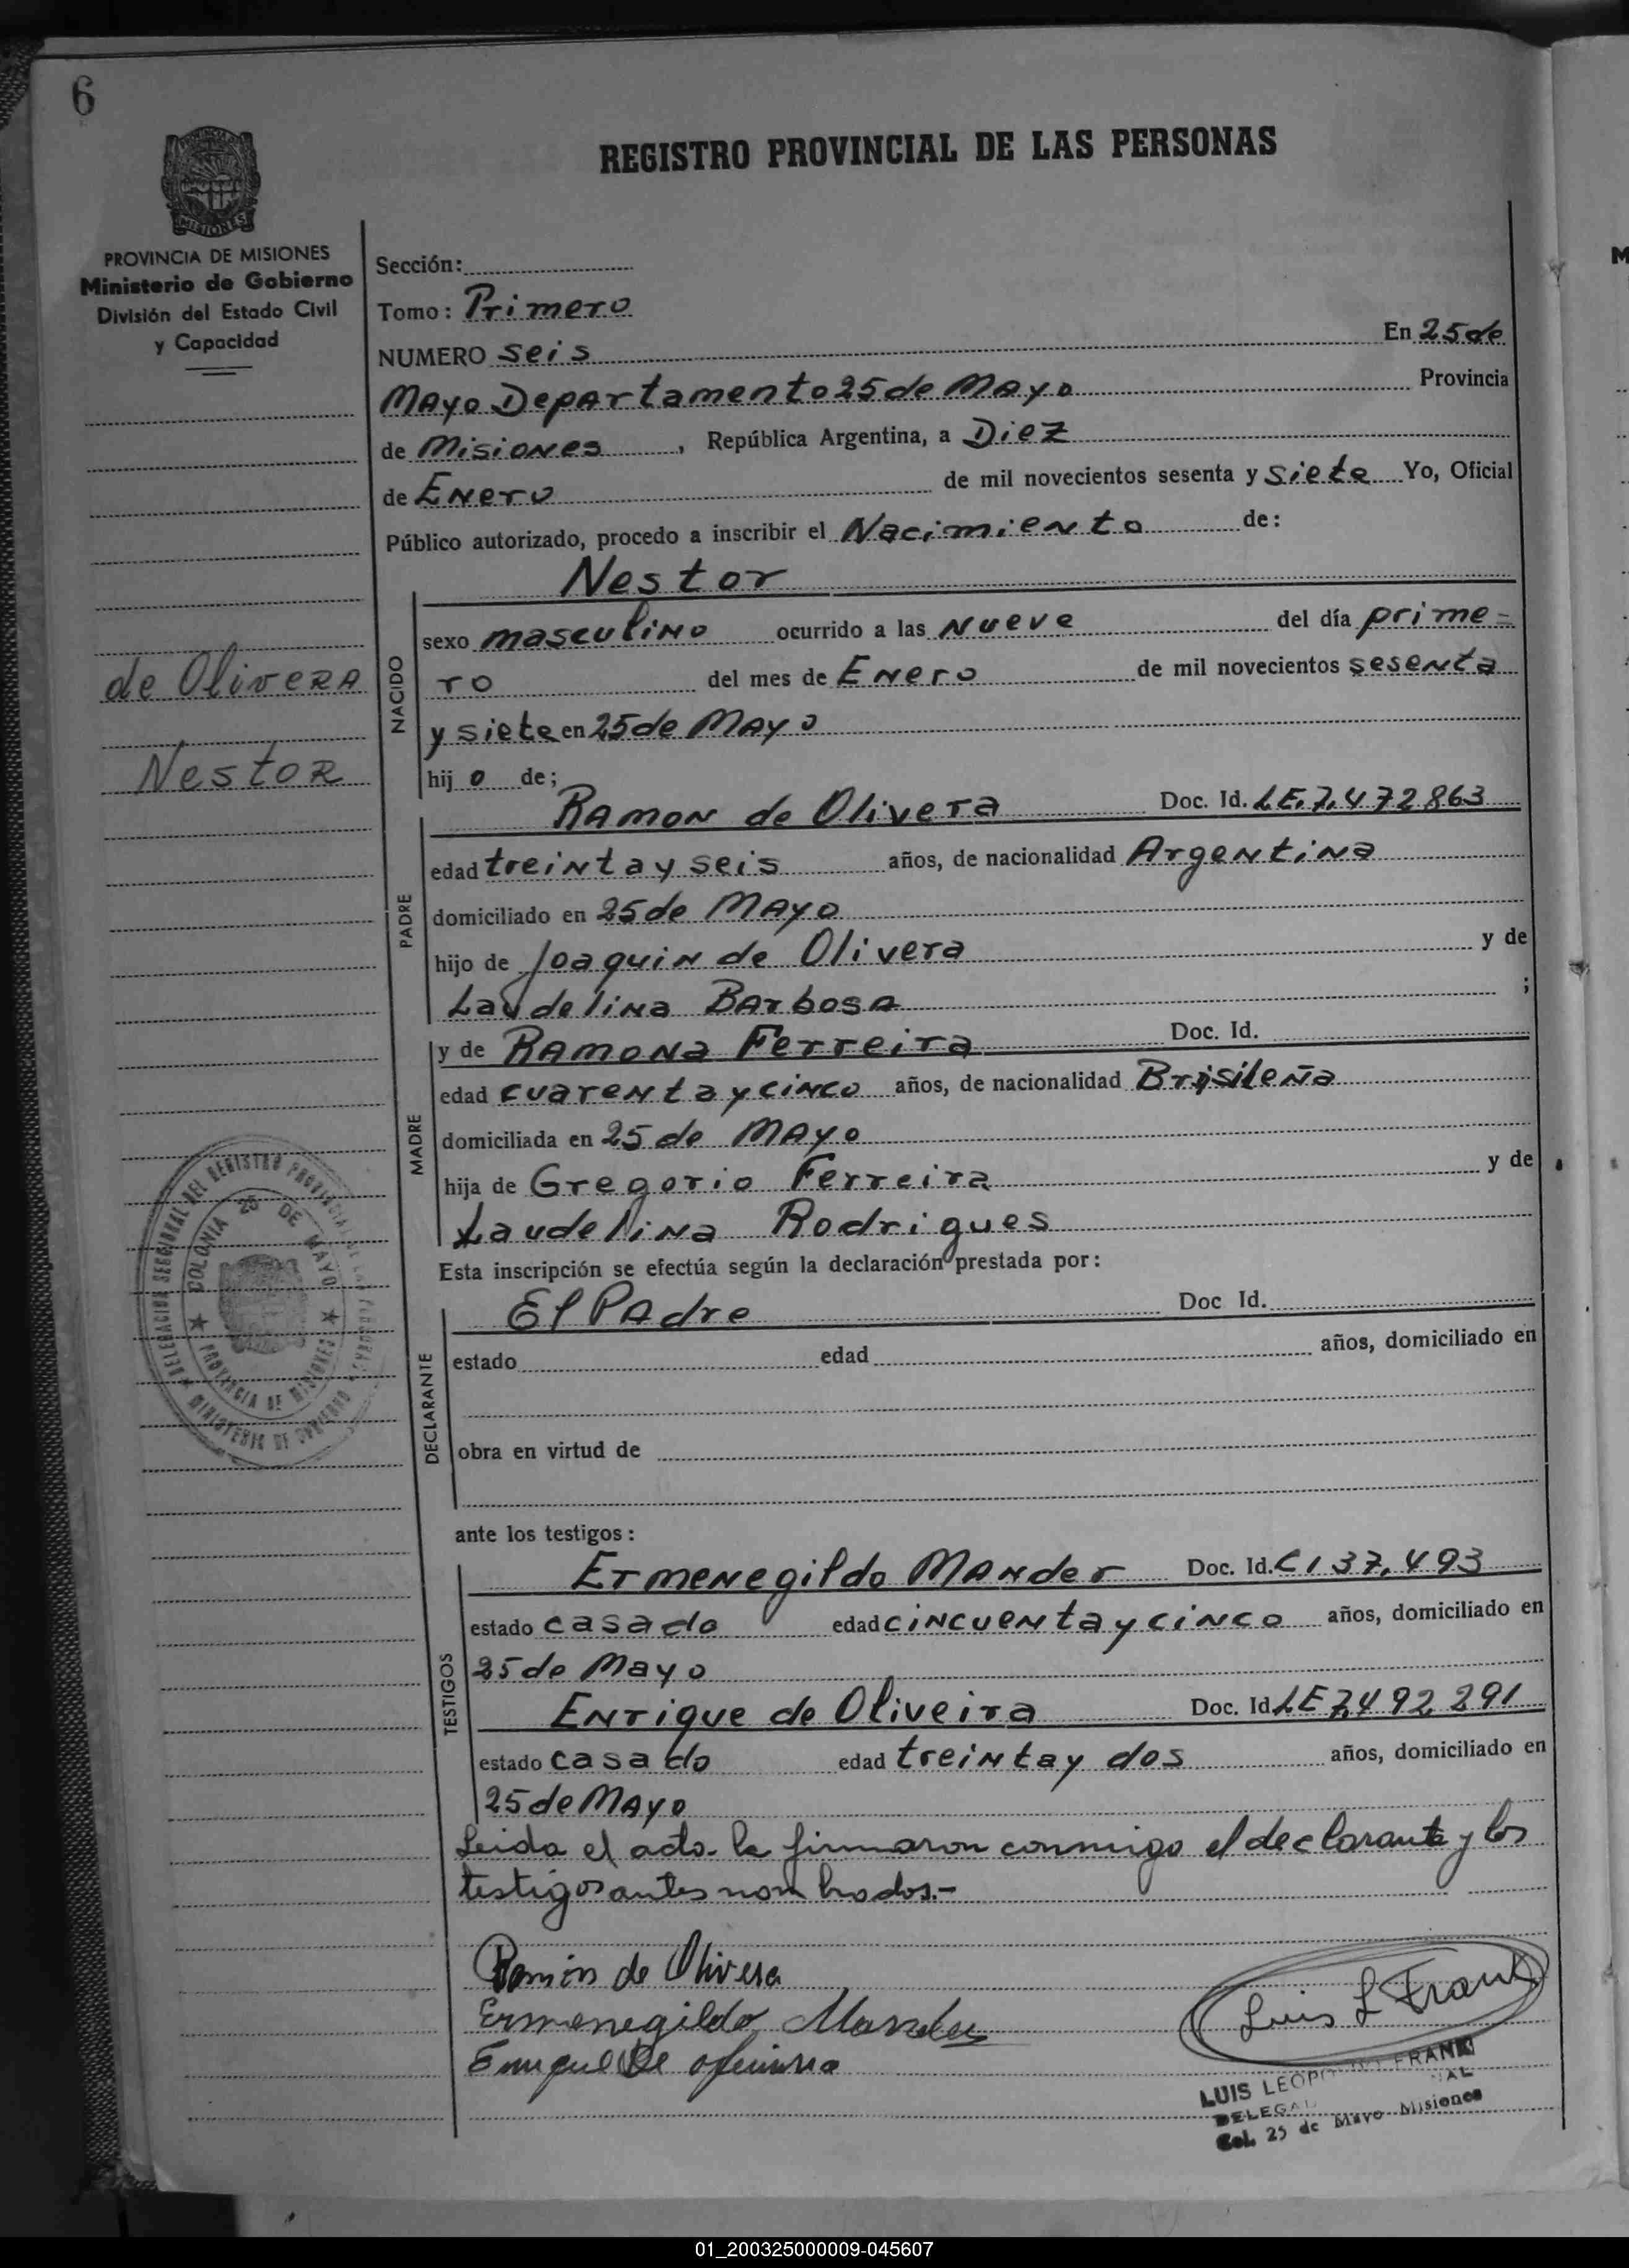 6
REGISTRO PROVINCIAL DE LAS PERSONAS
MISIONES
PROVINCIA DE MISIONES
Ministerio de Gobierno
División del Estado Civil
y Capacidad
Sección:
Tomo: Primero
NUMERO seis En 25 de
Mayo Departamento 25 de Mayo Provincia
de Misiones, República Argentina, a Diez
de Enero de mil novecientos sesenta y siete Yo, Oficial
Público autorizado, procedo a inscribir el Nacimiento de:
Nestor
NACIDO
sexo masculino ocurrido a las Nueve del día prime=
ro del mes de Enero de mil novecientos sesenta
de Olivera
y siete en 25 de Mayo
Nestor
hijo de;
Ramon de Olivera Doc. Id. LE.7.472863
PADRE
edad treinta y seis años, de nacionalidad Argentina
domiciliado en 25 de Mayo
hijo de Joaquin de Olivera y de
Laudelina Barbosa ;
y de Ramona Ferreira Doc. Id.
MADRE
edad cuarenta y cinco años, de nacionalidad Brasileña
domiciliada en 25 de Mayo
hija de Gregorio Ferreira y de
Laudelina Rodrigues
Esta inscripción se efectúa según la declaración prestada por:
DELEGACION SECCIONAL DEL REGISTRO PROVINCIAL DE LAS PERSONAS
COLONIA 25 DE MAYO
PROVINCIA DE MISIONES
MINISTERIO DE GOBIERNO
El Padre Doc Id.
DECLARANTE
estado edad años, domiciliado en
obra en virtud de
ante los testigos:
Ermenegildo Mander Doc. Id. CI 37.493
TESTIGOS
estado casado edad cincuenta y cinco años, domiciliado en
25 de Mayo
Enrique de Oliveira Doc. Id LE 7.492.291
estado casado edad treinta y dos años, domiciliado en
25 de Mayo
Leida el acta la firmaron conmigo el declarante y los
testigos antes nombrados.-
Ramón de Olivera
Ermenegildo Mander
Enrique De
Luis L Frank
LUIS FRANK
Col. 25 de Mayo Misiones
01_200325000009-045607